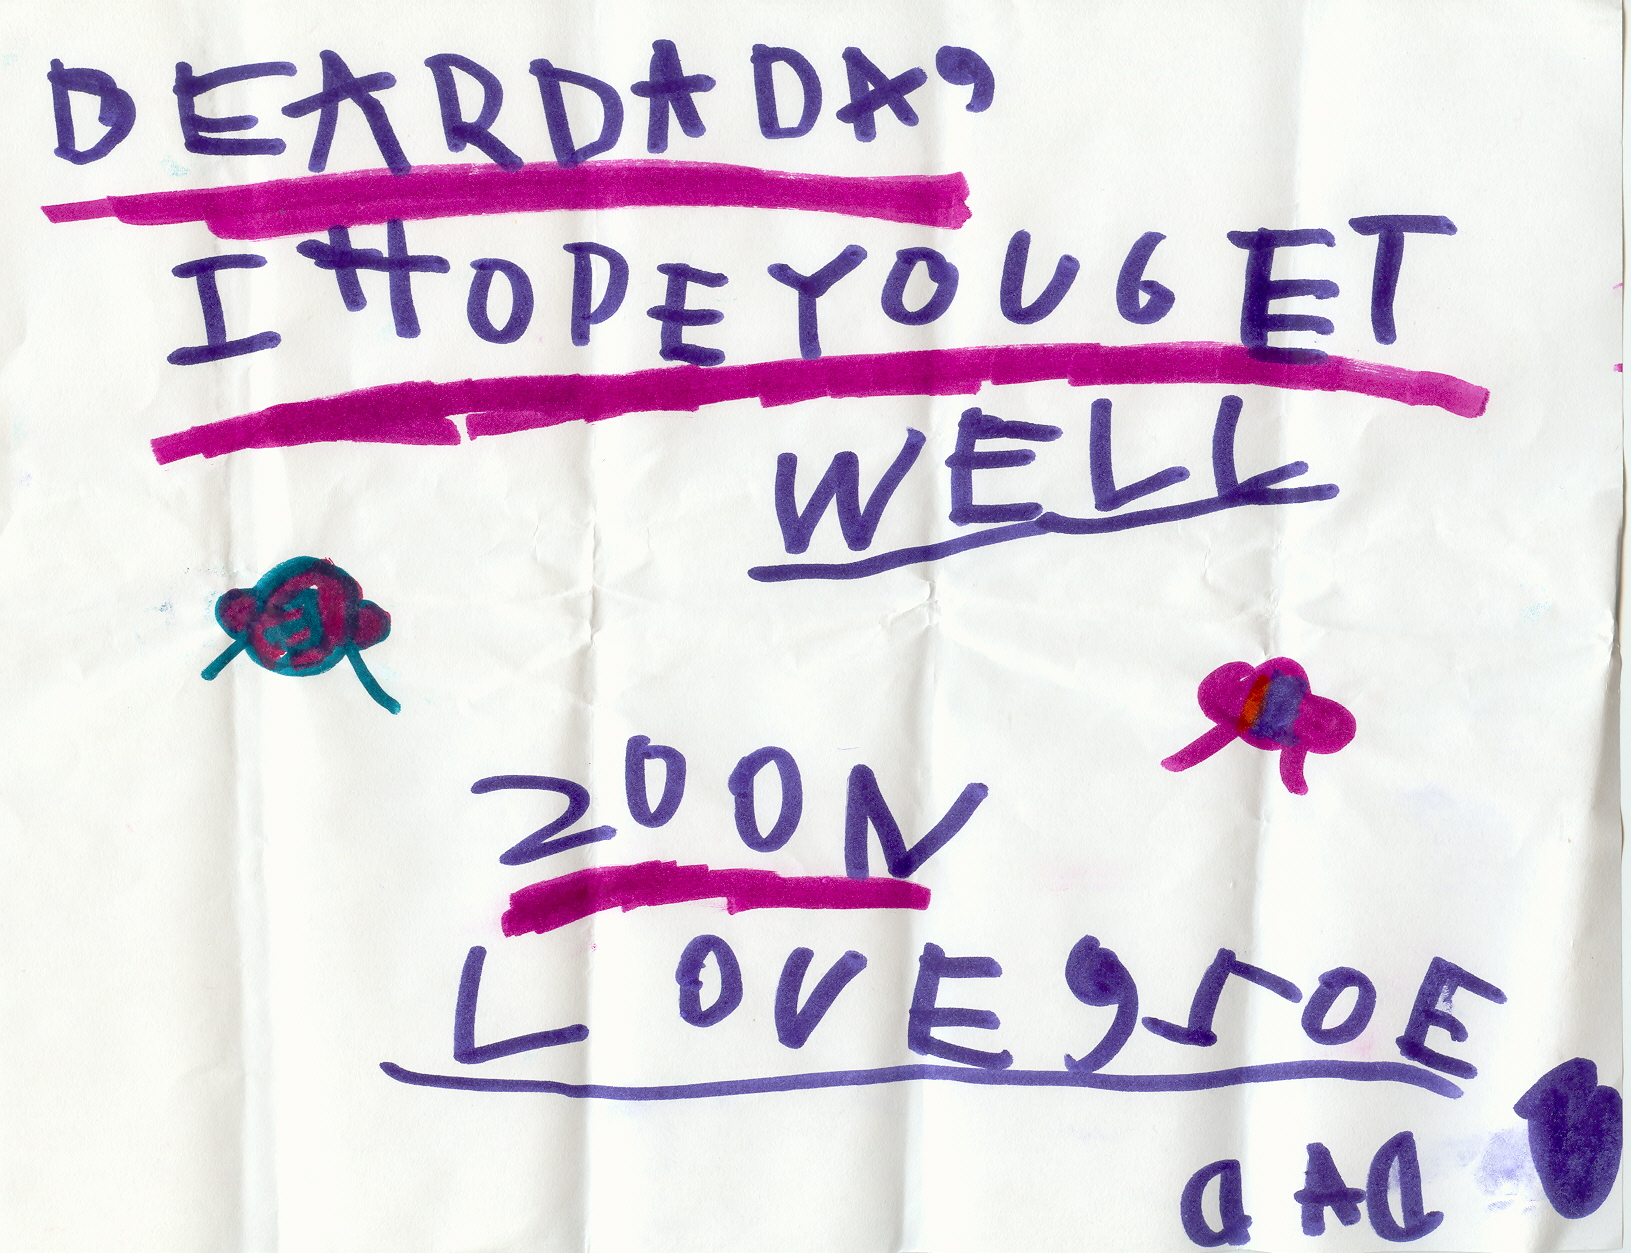 DEAR DADA,
I HOPE YOU GET
WELL
ZOON
LOVE, ZOE
DAD